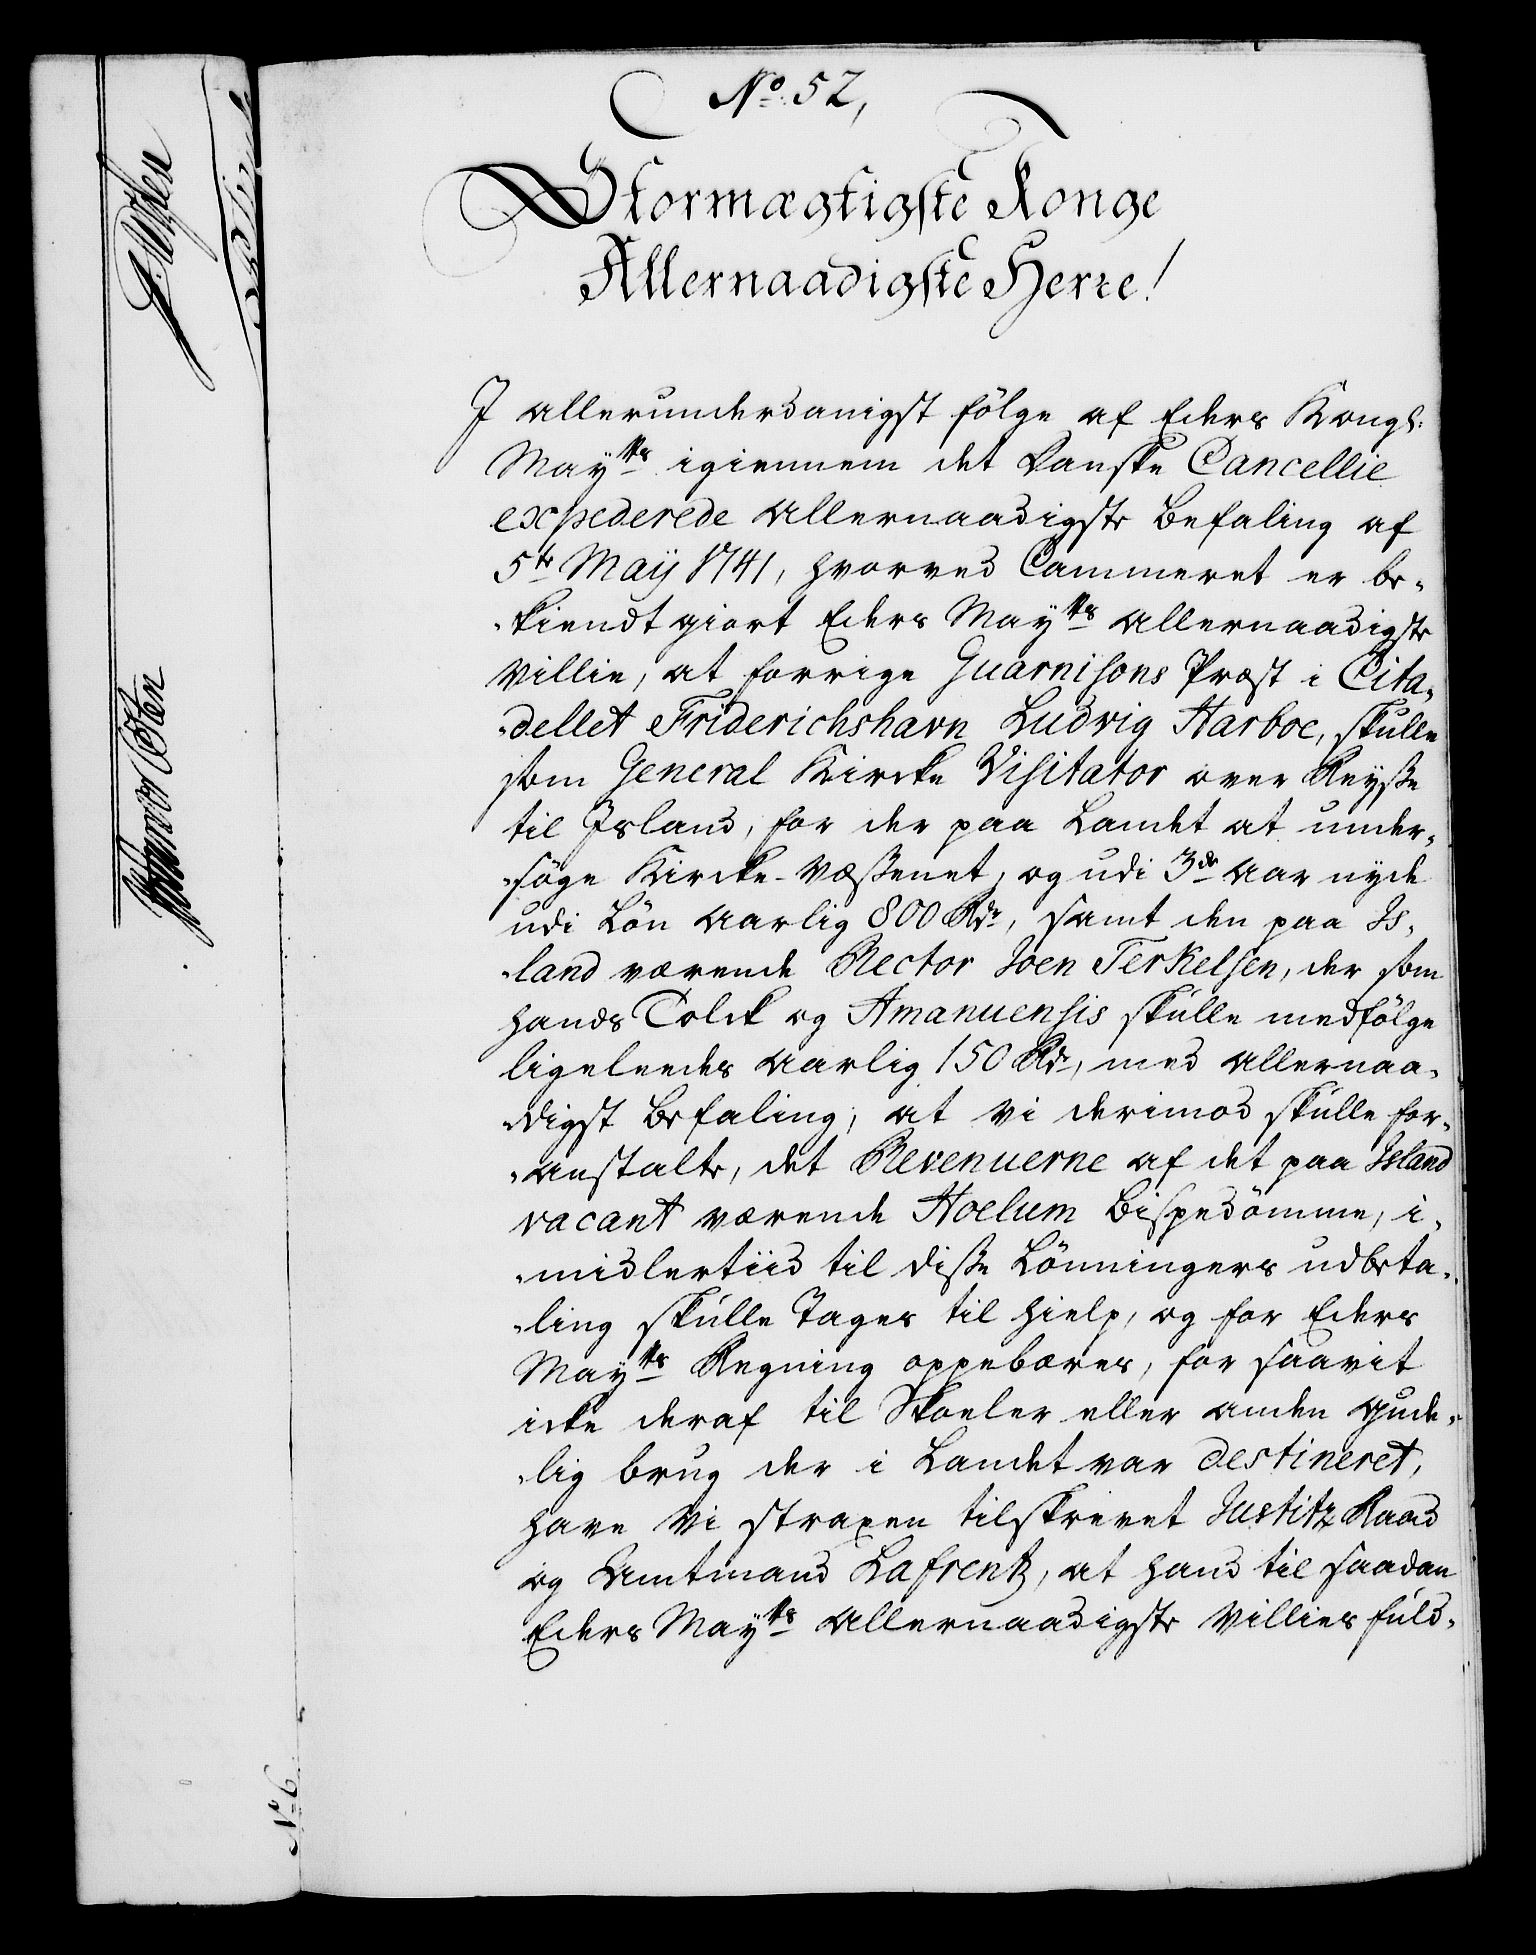 No. 52,
Stormægtigste Konge
Allernaadigste Herre!
I allerunderdanigst fölge af Eders Kongl.
Mayts igiennem det Danske Cancellie
expederede allernaadigste Befaling af
5te Maij 1741, hvorved Cammeret er be-
-kiendtgiort Eders Mayts allernaadigste
Villie, at forrige Guarnisons Præst i Cita-
-dellet Friderichshavn Ludvig Harboe, skulle
som General Kircke Visitator over Reysse
til Island, for der paa Landet at under-
-søge Kircke-Væssenet, og udi 3de Aar nyde
udi Lön aarlig 800 Rdr, samt den paa Is-
-land værende Rector Joen Terkelsen, der som
hands Tolck og Amanuensis skulle medfölge
ligeleedes aarlig 150 Rdr, med allernaa-
-digst Befaling, at vi derimod skulle for-
-anstalte, det Revenuerne af det paa Island
vacant værende Hoelum Bispedömme, i-
-midlertiid til disse Lönningers udbeta-
-ling skulle tages til hielp, og for Eders
Mayts Regning oppebæres, for saavit
icke deraf til Skoeler eller anden gude-
-lig brug der i Landet var destineret,
have vi straxen tilskrevet Justitz Raad
og Amtmand Lafrentz, at hand til saadan
Eders Mayts allernaadigste Villies fuld-
No 6